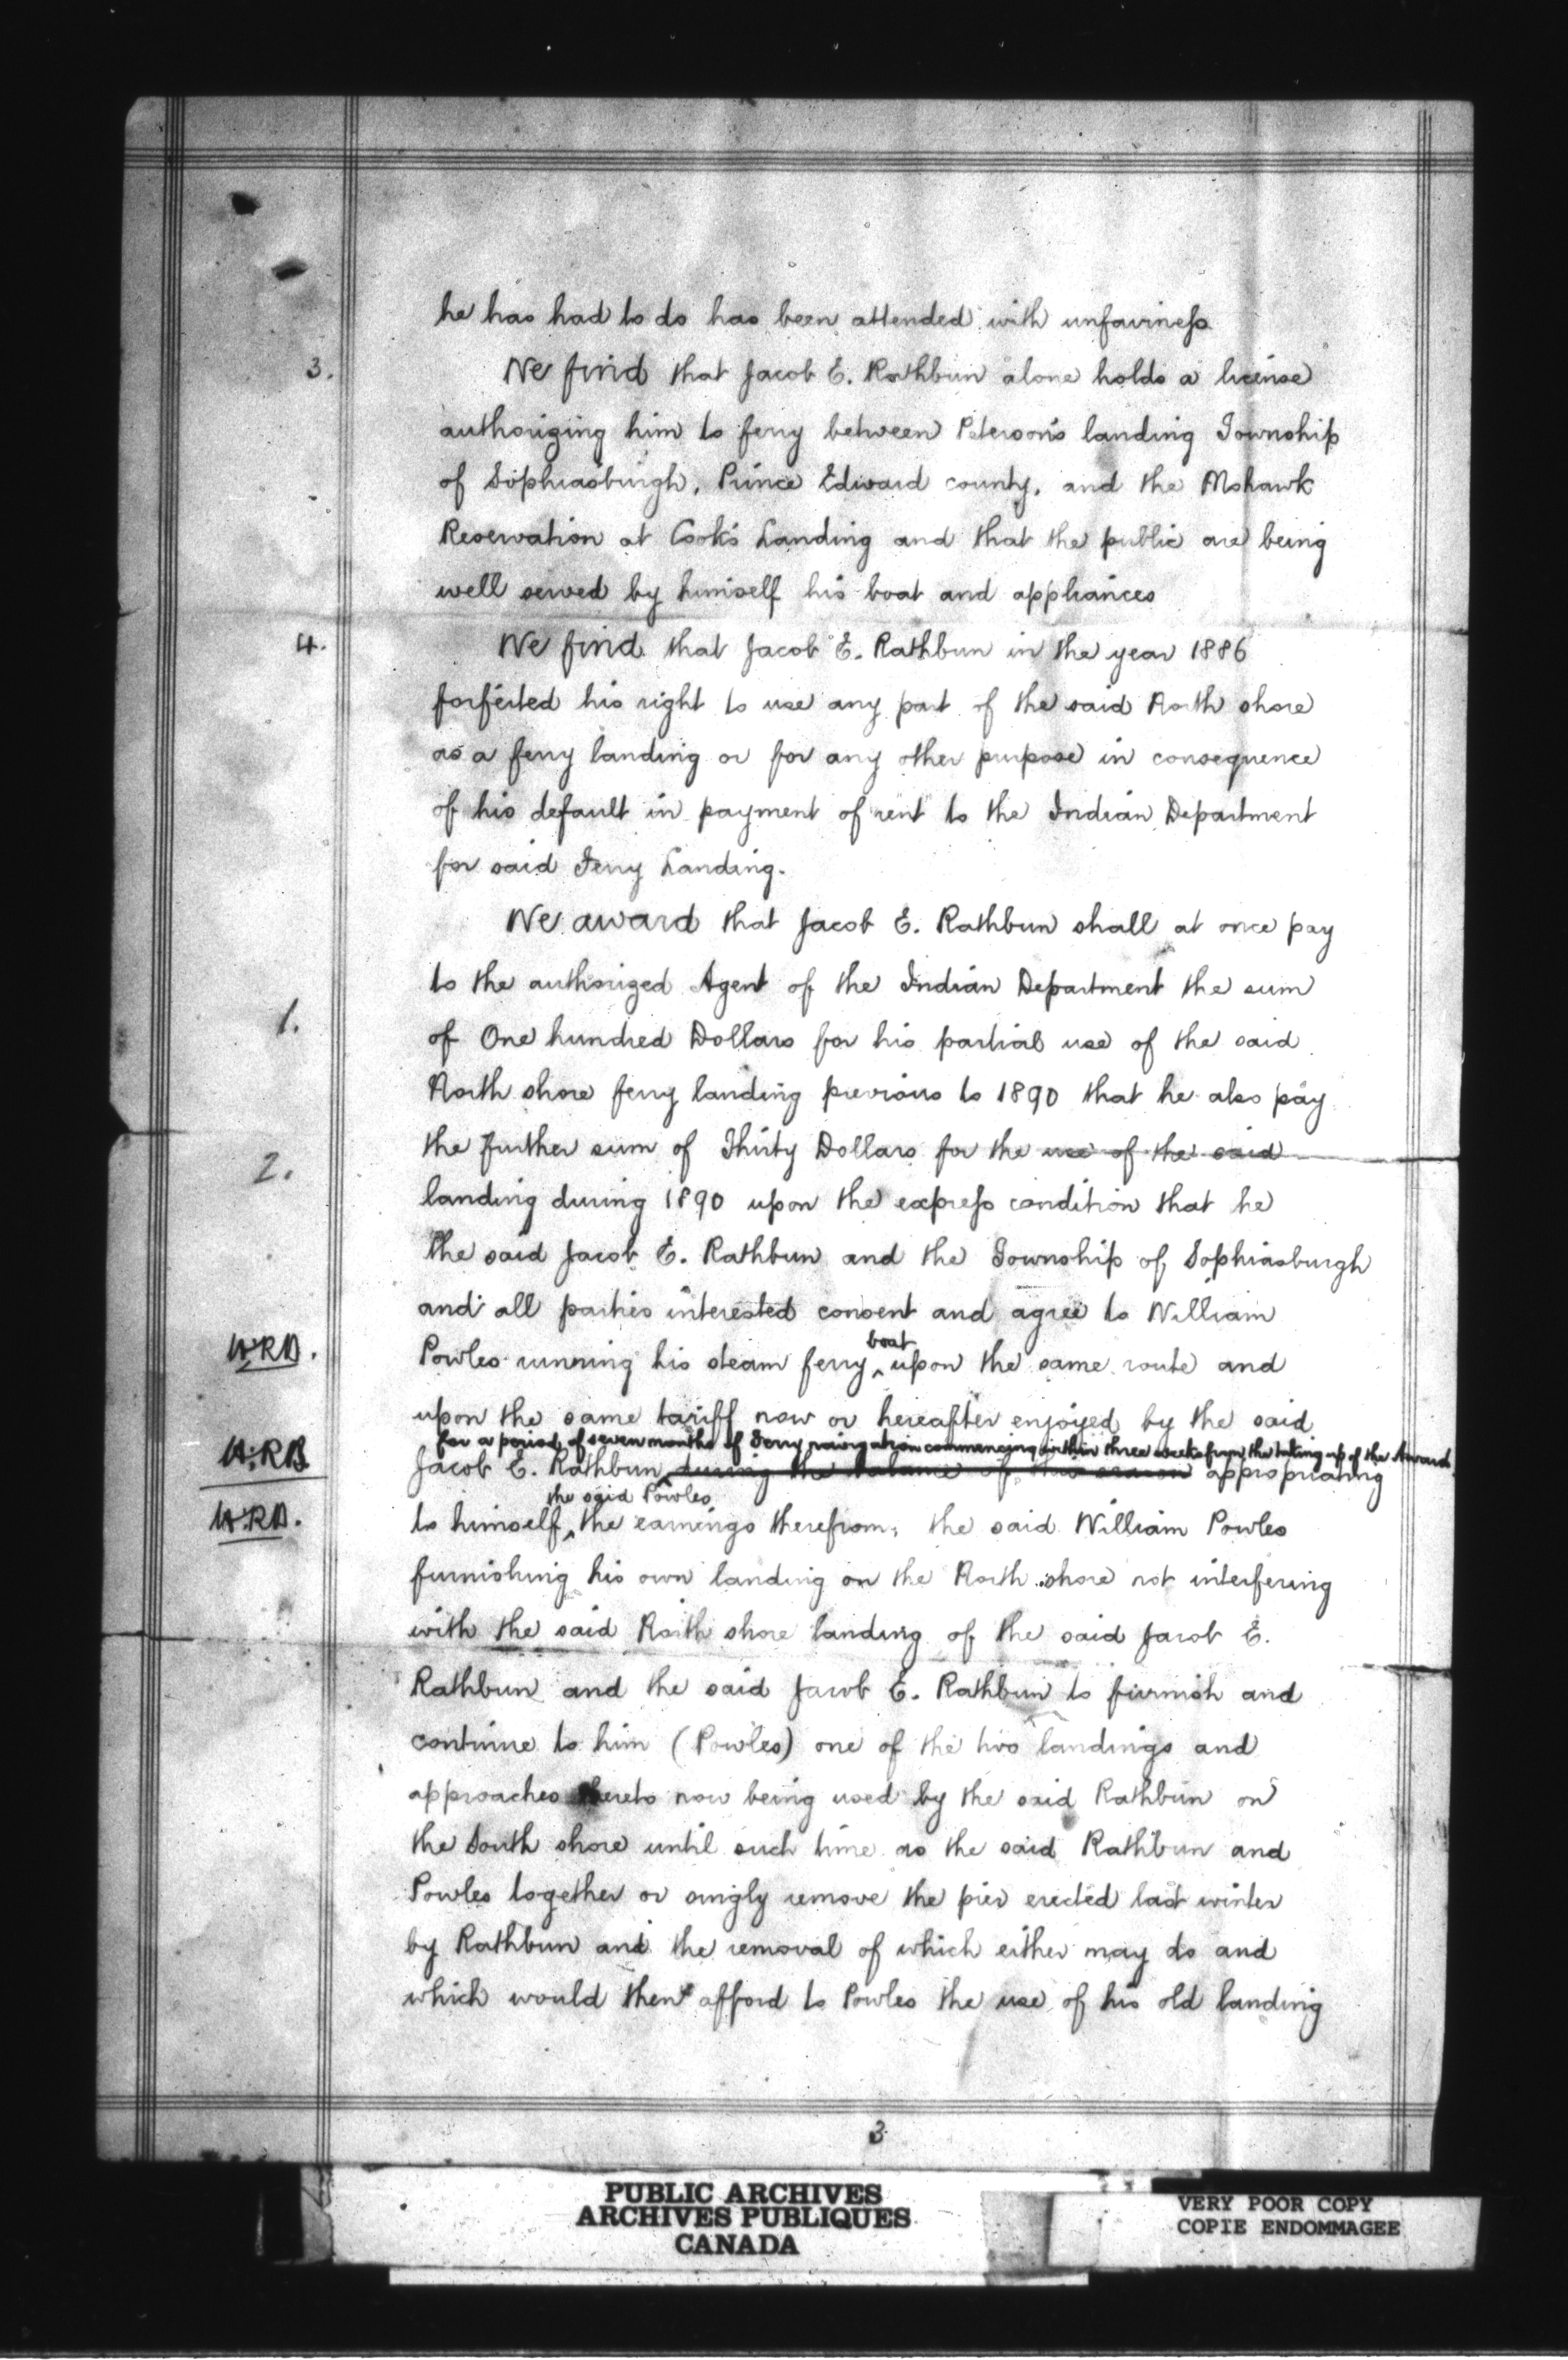 he has had to do has been attended with unfairness
3. We find that Jacob E. Rathbun alone holds a license
authorizing him to ferry between Peterson's landing Township
of Sophiasburgh, Prince Edward county, and the Mohawk
Reservation at Cook's Landing and that the public are being
well served by himself his boat and appliances
4. We find that Jacob E. Rathbun in the year 1886
forfeited his right to use any part of the said North shore
as a ferry landing or for any other purpose in consequence
of his default in payment of rent to the Indian Department
for said Ferry Landing.
We award that Jacob E. Rathbun shall at once pay
to the authorized Agent of the Indian Department the sum
1. of One hundred Dollars for his partial use of the said
North shore ferry landing previous to 1890 that he also pay
2. the further sum of Thirty Dollars for the use of the said
landing during 1890 upon the express condition that he
the said Jacob E. Rathbun and the Township of Sophiasburgh
and all parties interested consent and agree to William
boat
Powles running his steam ferry ^ upon the same route and
upon the same tariff now or hereafter enjoyed by the said
for a period of seven months of Ferry navigation commencing within three weeks from the taking up of the Award
Jacob E. Rathbun during the balance of this season appropriating
the said Powles
to himself ^ the earnings therefrom, the said William Powles
furnishing his own landing on the North shore not interfering
with the said North shore landing of the said Jacob E.
Rathbun and the said Jacob E. Rathbun to furnish and
continue to him (Powles) one of the two landings and
approaches thereto now being used by the said Rathbun on
the South shore until such time as the said Rathbun and
Powles together or singly remove the pier erected last winter
by Rathbun and the removal of which either may do and
which would then afford to Powles the use of his old landing
3
PUBLIC ARCHIVES
ARCHIVES PUBLIQUES
CANADA
VERY POOR COPY
COPIE ENDOMMAGEE